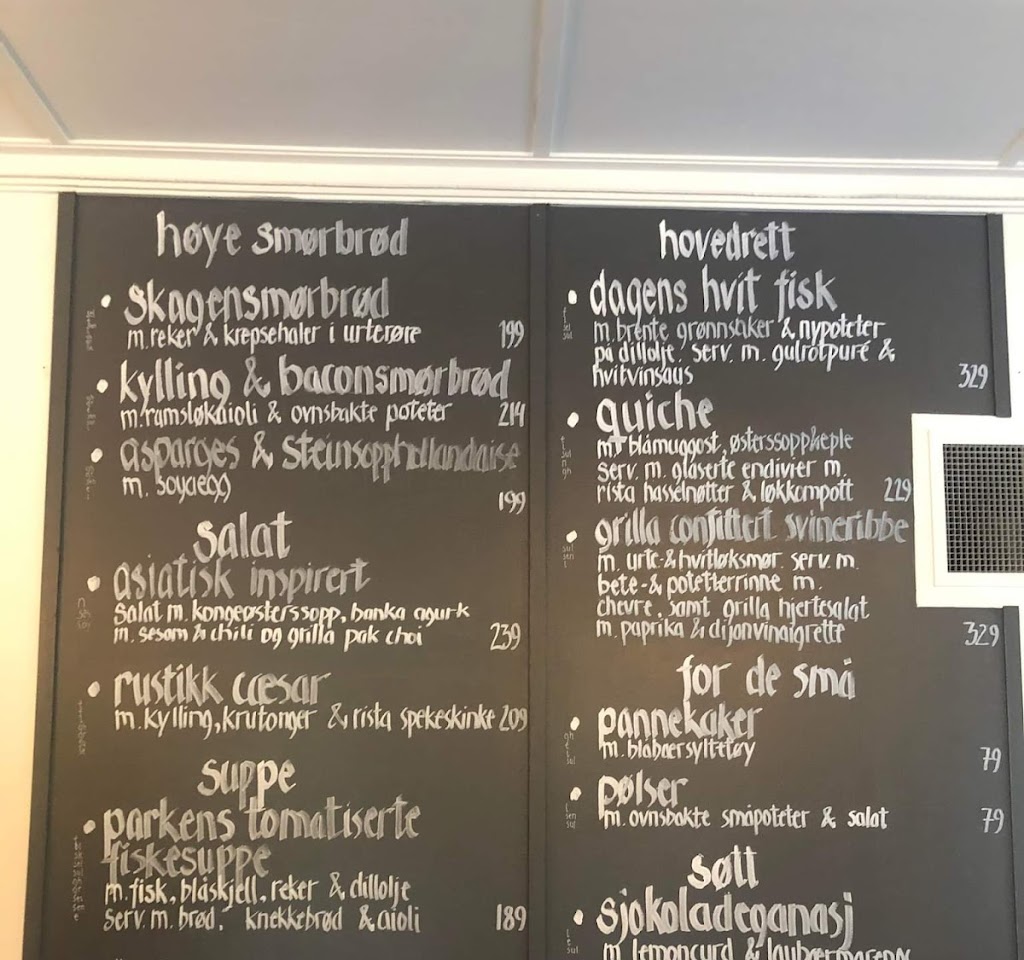 høye smørbrød
• skagensmørbrød
m. reker & krepsehaler i urterøre 199
• kylling & baconsmørbrød
m. ramsløkaioli & ovnsbakte poteter 214
• asparges & steinsopphollandaise
m. soyaegg
199
salat
• asiatisk inspirert
salat m. kongeøsterssopp, banka agurk
m. sesam & chili og grilla pak choi 239
• rustikk cæsar
m. kylling, krutonger & rista spekeskinke 209
suppe
• parkens tomatiserte
fiskesuppe
m. fisk, blåskjell, reker & dillolje
serv. m. brød, knekkebrød & aioli 189
hovedrett
• dagens hvit fisk
m. brente grønnsaker & nypoteter
på dillolje. serv. m. gulrotpuré &
hvitvinsaus 329
• quiche
m. blåmuggost, østerssopp & eple
serv. m. glaserte endivier m.
rista hasselnøtter & løkkompott 229
• grilla confittert svineribbe
m. urte- & hvitløksmør. serv. m.
bete- & potetterrinne m.
chevre, samt grilla hjertesalat
m. paprika & dijonvinaigrette 329
for de små
• pannekaker
m. blåbærsyltetøy 79
• pølser
m. ovnsbakte småpoteter & salat 79
søtt
• sjokoladeganasj
m. lemoncurd & laubærmareng